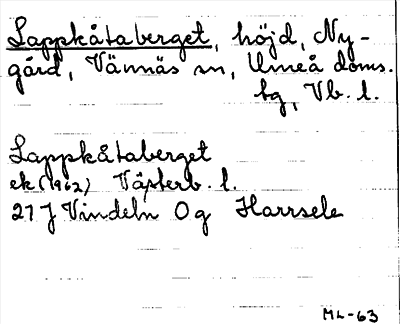 Lappkåtaberget, höjd, Ny-
gård, Vännäs sn, Umeå doms.
tg, Vb. l.
Lappkåtaberget
ek (1962) Västerb. l.
21 J Vindeln 0g Harrsele
ML-63